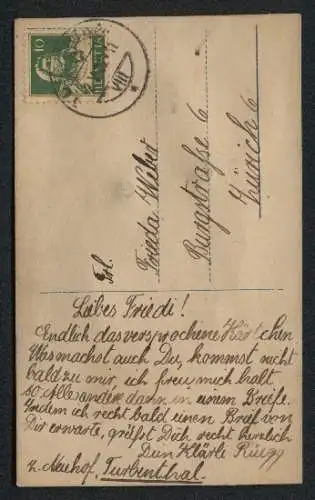 10
HELVETIA
VIII
Frl.
Frieda Weber
Burgstraße 6
Zürich 6
Liebes Friedi!
Endlich das versprochene Kärtchen
Was machst auch Du, kommst nicht
bald zu mir, ich freu mich halt
so. Alles andere dann in einem Briefe.
Indem ich recht bald einen Brief von
Dir erwarte, grüßt Dich recht herzlich
Dein Klärle Rüegg
z. Neuhof, Turbenthal.